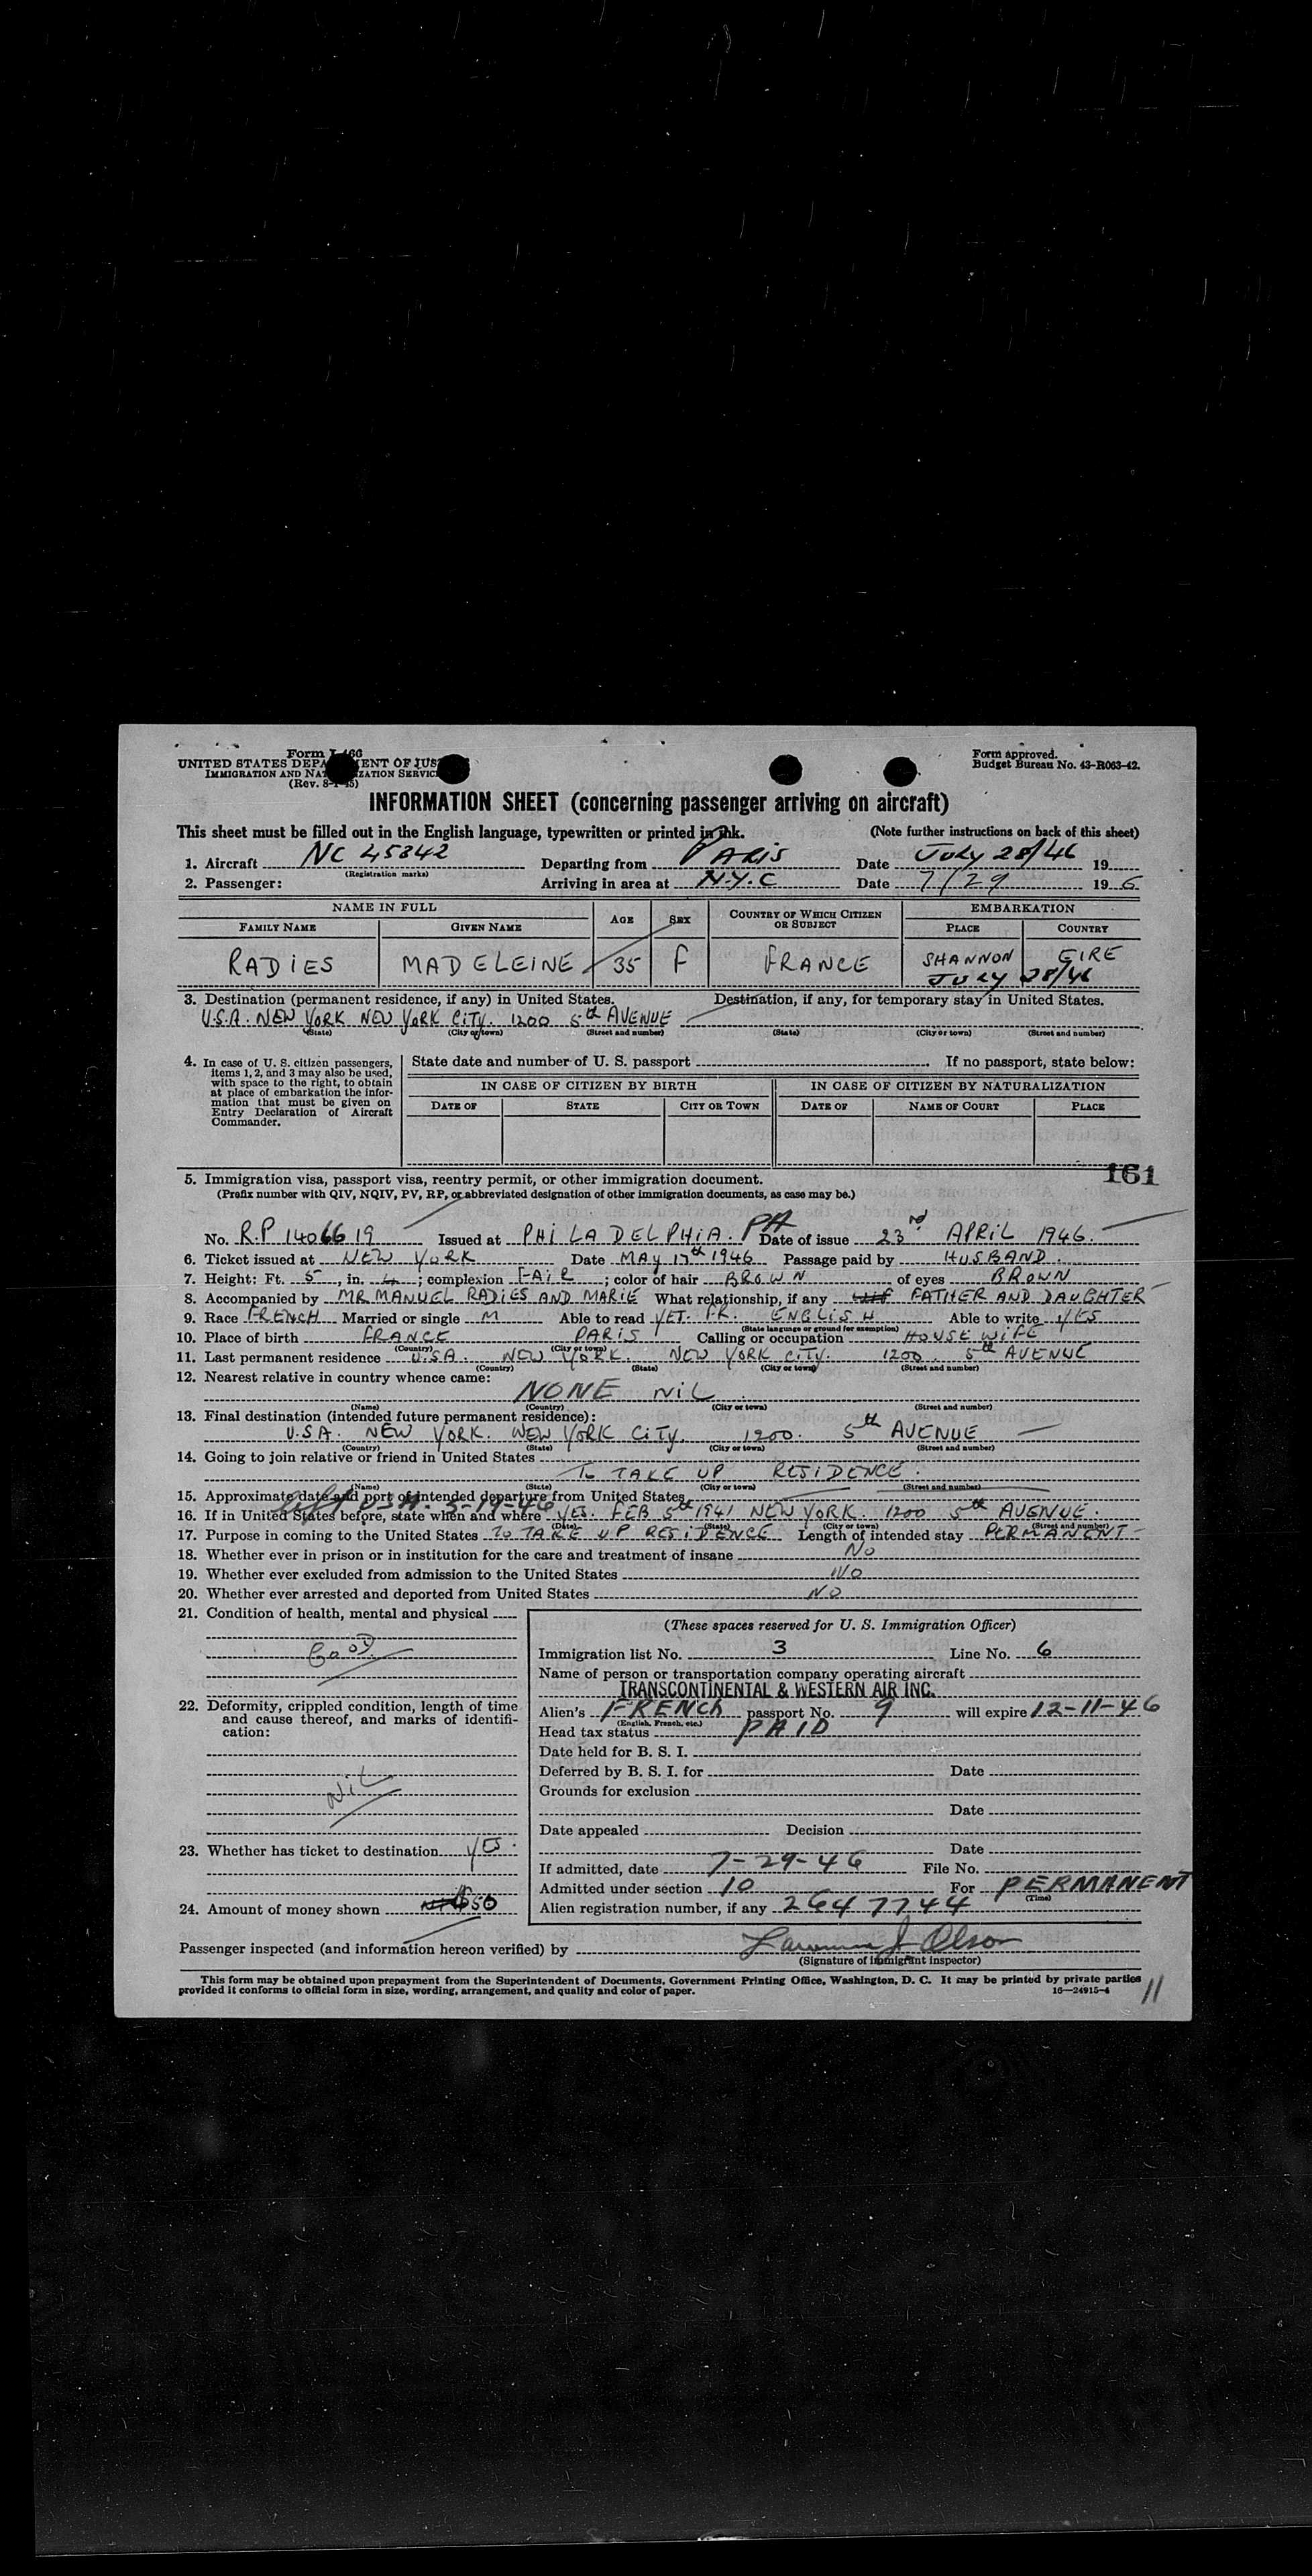 Form I-466
UNITED STATES DEPARTMENT OF JUSTICE
IMMIGRATION AND NATURALIZATION SERVICE
(Rev. 8-1-45)
Form approved.
Budget Bureau No. 43-R063-42.
INFORMATION SHEET (concerning passenger arriving on aircraft)
This sheet must be filled out in the English language, typewritten or printed in ink. (Note further instructions on back of this sheet)
1. Aircraft NC 45342 Departing from PARIS Date JULY 28/46 19
(Registration marks)
2. Passenger: Arriving in area at N.Y.C Date 7/29 19 6
NAME IN FULL AGE SEX COUNTRY OF WHICH CITIZEN OR SUBJECT EMBARKATION
FAMILY NAME GIVEN NAME PLACE COUNTRY
RADIES MADELEINE 35 F FRANCE SHANNON EIRE
JULY 28/46
3. Destination (permanent residence, if any) in United States. Destination, if any, for temporary stay in United States.
U.S.A. NEW YORK NEW YORK CITY. 1200 5th AVENUE
(State) (City or town) (Street and number) (State) (City or town) (Street and number)
4. In case of U. S. citizen passengers, items 1, 2, and 3 may also be used, with space to the right, to obtain at place of embarkation the information that must be given on Entry Declaration of Aircraft Commander.
State date and number of U. S. passport If no passport, state below:
IN CASE OF CITIZEN BY BIRTH IN CASE OF CITIZEN BY NATURALIZATION
DATE OF STATE CITY OR TOWN DATE OF NAME OF COURT PLACE
161
5. Immigration visa, passport visa, reentry permit, or other immigration document.
(Prefix number with QIV, NQIV, PV, RP, or abbreviated designation of other immigration documents, as case may be.)
No. R.P 1406619 Issued at PHILADELPHIA. PA Date of issue 23rd APRIL 1946.
6. Ticket issued at NEW YORK Date MAY 17th 1946 Passage paid by HUSBAND.
7. Height: Ft. 5, in. 4; complexion FAIR; color of hair BROWN of eyes BROWN
8. Accompanied by MR MANUEL RADIES AND MARIE What relationship, if any FATHER AND DAUGHTER
9. Race FRENCH Married or single M Able to read YET. FR. ENGLISH Able to write YES
(State language or ground for exemption)
10. Place of birth FRANCE PARIS Calling or occupation HOUSE WIFE
(Country) (City or town)
11. Last permanent residence U.S.A. NEW YORK. NEW YORK CITY. 1200. 5th AVENUE
(Country) (State) (City or town) (Street and number)
12. Nearest relative in country whence came:
NONE NIL
(Name) (Country) (City or town) (Street and number)
13. Final destination (intended future permanent residence):
U.S.A. NEW YORK. NEW YORK CITY. 1200. 5th AVENUE
(Country) (State) (City or town) (Street and number)
14. Going to join relative or friend in United States
To TAKE UP RESIDENCE.
(Name) (State) (City or town) (Street and number)
15. Approximate date and port of intended departure from United States
left USA. 5-19-46
16. If in United States before, state when and where YES. FEB 5th 1941 NEW YORK. 1200 5th AVENUE.
(Date) (State) (City or town) (Street and number)
17. Purpose in coming to the United States TO TAKE UP RESIDENCE Length of intended stay PERMANENT
18. Whether ever in prison or in institution for the care and treatment of insane No
19. Whether ever excluded from admission to the United States NO
20. Whether ever arrested and deported from United States NO
21. Condition of health, mental and physical
GOOD.
22. Deformity, crippled condition, length of time and cause thereof, and marks of identification:
NiL
23. Whether has ticket to destination YES.
24. Amount of money shown $50
(These spaces reserved for U. S. Immigration Officer)
Immigration list No. 3 Line No. 6
Name of person or transportation company operating aircraft
TRANSCONTINENTAL & WESTERN AIR INC.
Alien's FRENCH passport No. 9 will expire 12-11-46
(English, French, etc.)
Head tax status PAID
Date held for B. S. I.
Deferred by B. S. I. for Date
Grounds for exclusion
Date
Date appealed Decision
Date
If admitted, date 7-29-46 File No.
Admitted under section 10 For PERMANENT
(Time)
Alien registration number, if any 2647744
Passenger inspected (and information hereon verified) by Lawrence J. Olson
(Signature of immigrant inspector)
This form may be obtained upon prepayment from the Superintendent of Documents, Government Printing Office, Washington, D. C. It may be printed by private parties
provided it conforms to official form in size, wording, arrangement, and quality and color of paper. 16—24915-4
11